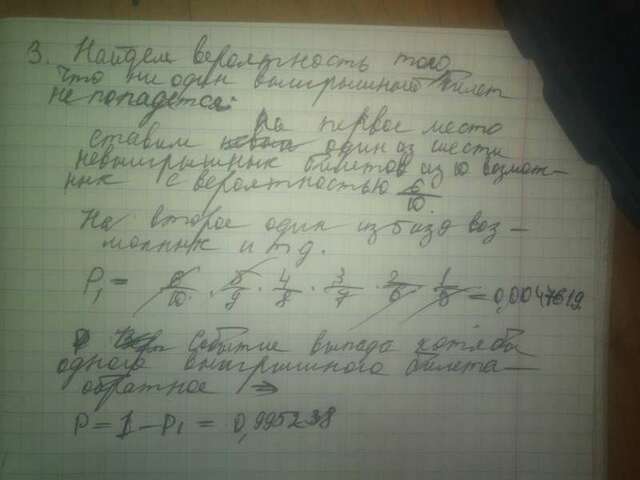 3. Найдем вероятность того
что ни один выигрышный билет
не попадется. На первое место
ставим один из шести
невыигрышных билетов из 10 возмож-
ных с вероятностью 6/10
На второе один из 5 из 9 воз-
можных и т.д.
P₁ = 6/10 · 5/9 · 4/8 · 3/7 · 2/6 · 1/5 = 0,0047619
событие выпада хотя бы
одного выигрышного билета —
обратное ⇒
P = 1 - P₁ = 0,995238